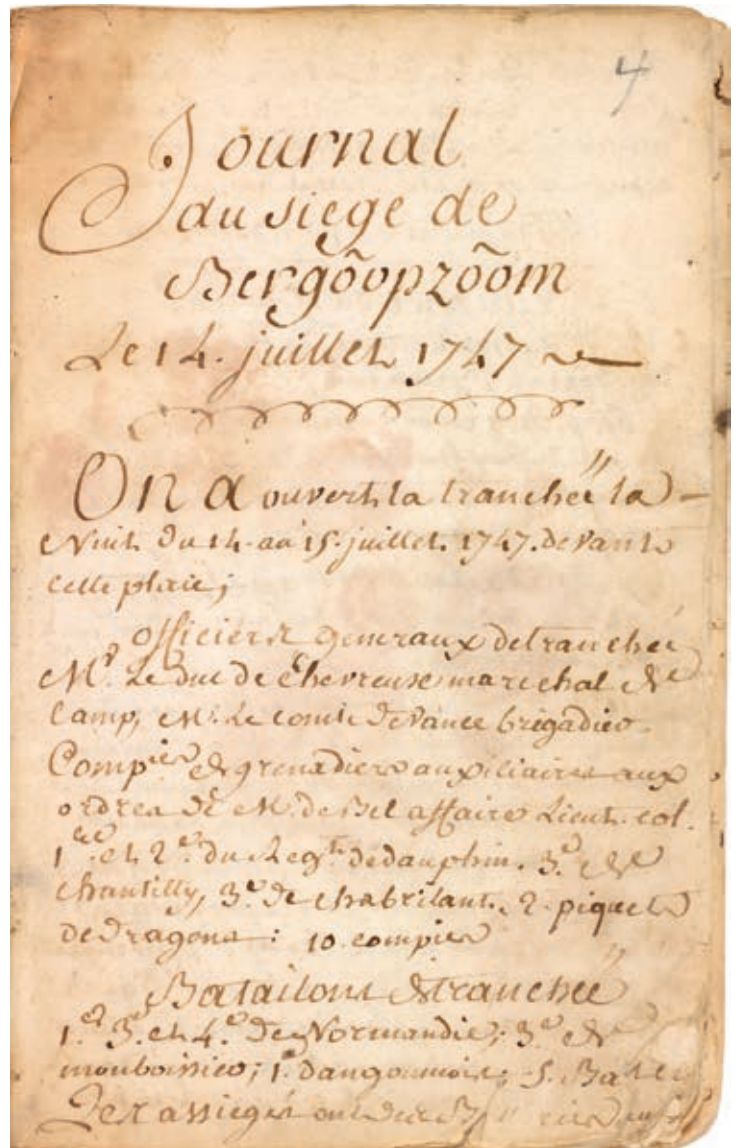 4
Journal
du siege de
Bergõopzõom
Le 14. juillet 1747
On a ouvert la tranchéé la
Nuit du 14. au 15. juillet. 1747. devant
cette place;
officiers generaux de tranchéé
Mr. Le duc de Chevreuse marechal de
Camp, Mr. Le comte de Vance brigadier
Compies de grenadiers auxiliaires aux
ordres de M. de Bel affaire Lieut. col.
1er. et 2e. du Regt. de dauphin. 3e. de
chantilly, 3e. de chabrilant. 2. piquets
de dragons: 10. compies
Batailons de tranchéé
1er. 3e. et 4e. de Normandie; 3e. de
monboissier; 1er. dangoumois; 5. Bat
Les assiegés ont